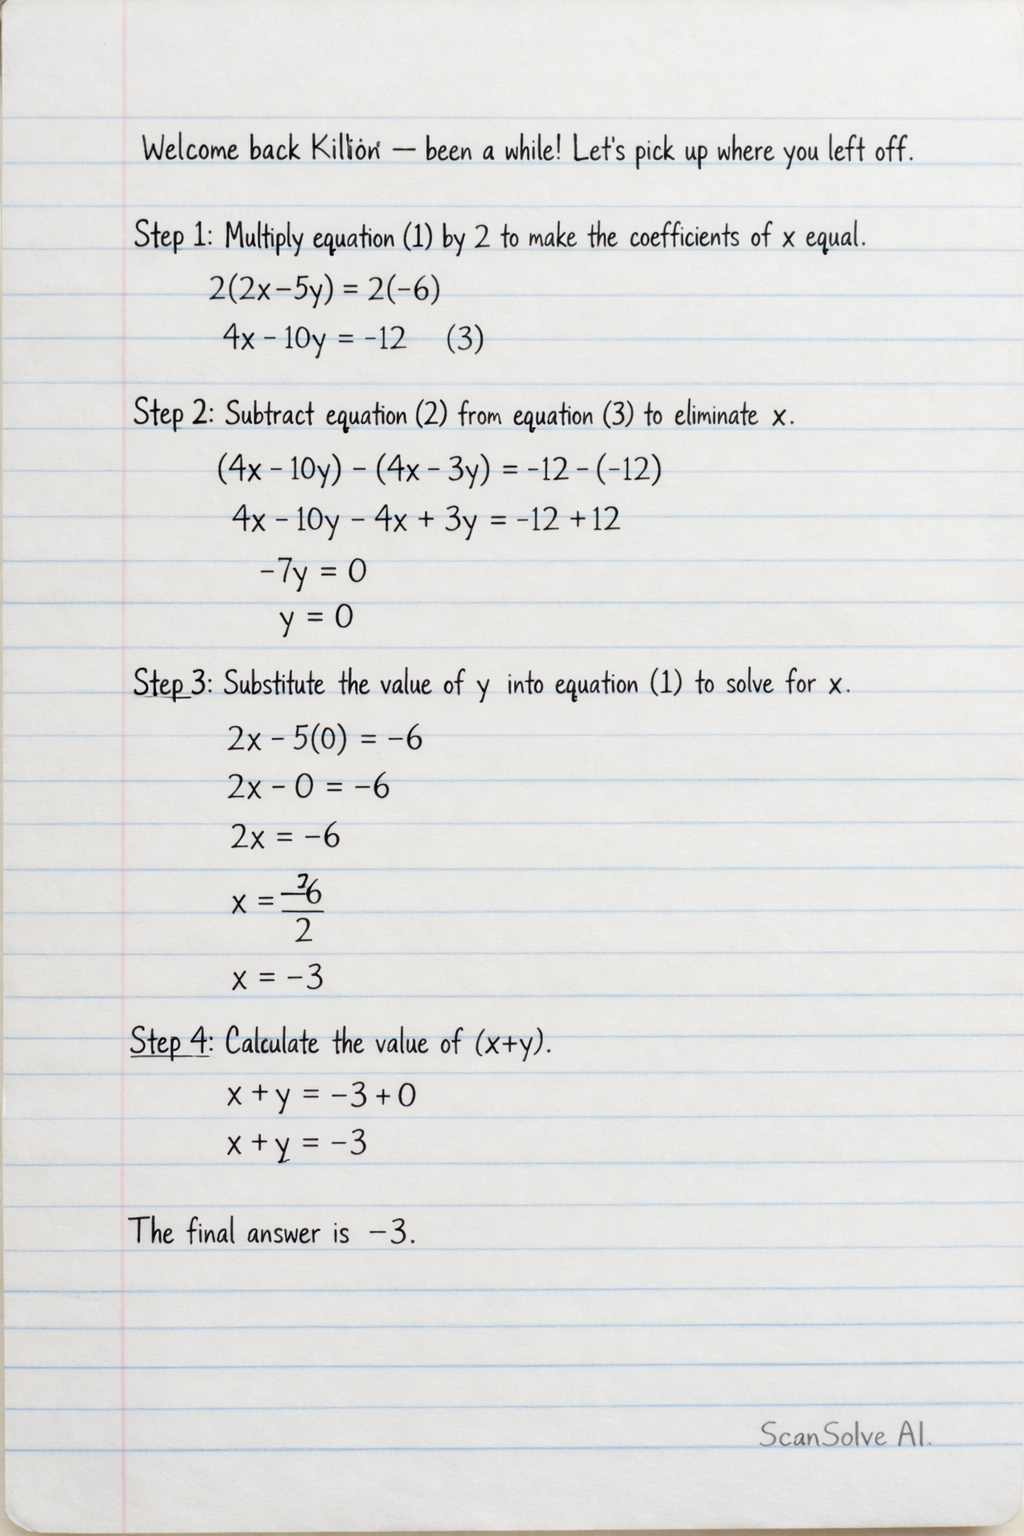 Welcome back — been a while! Let's pick up where you left off.
Step 1: Multiply equation (1) by 2 to make the coefficients of x equal.
2(2x-5y) = 2(-6)
4x - 10y = -12 (3)
Step 2: Subtract equation (2) from equation (3) to eliminate x.
(4x - 10y) - (4x - 3y) = -12 - (-12)
4x - 10y - 4x + 3y = -12 + 12
-7y = 0
y = 0
Step 3: Substitute the value of y into equation (1) to solve for x.
2x - 5(0) = -6
2x - 0 = -6
2x = -6
x =
2
x = -3
Step 4: Calculate the value of (x+y).
x + y = -3 + 0
x + y = -3
The final answer is -3.
ScanSolve AI.